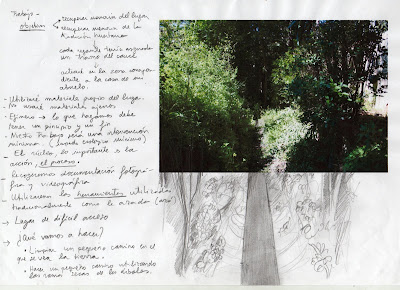 Trabajo
- objetivos
→ recuperar memoria del lugar.
→ recuperar memoria de la tradición huertana
cada regante tenía asignado un tramo del canal
actuar en la zona correspondiente a la casa de mi abuelo.
- Utilizaré materiales propios del lugar.
- No usaré materiales ajenos
- Efímero → lo que hagamos debe
tener un principio y un fin
- Nuestro trabajo será una intervención
mínima. (
ecológico mínimo)
El núcleo, lo importante es la
acción, el proceso.
- Recogeremos documentación fotográ-
fica y videográfica
- Utilizaremos las herramientas utilizadas
tradicionalmente como la azada
→ Lugar de difícil acceso
→ ¿Qué vamos a hacer?
• Limpiar un pequeño camino en el
que se vea la tierra.
• Hacer un pequeño camino utilizando
las ramas secas de los árboles.